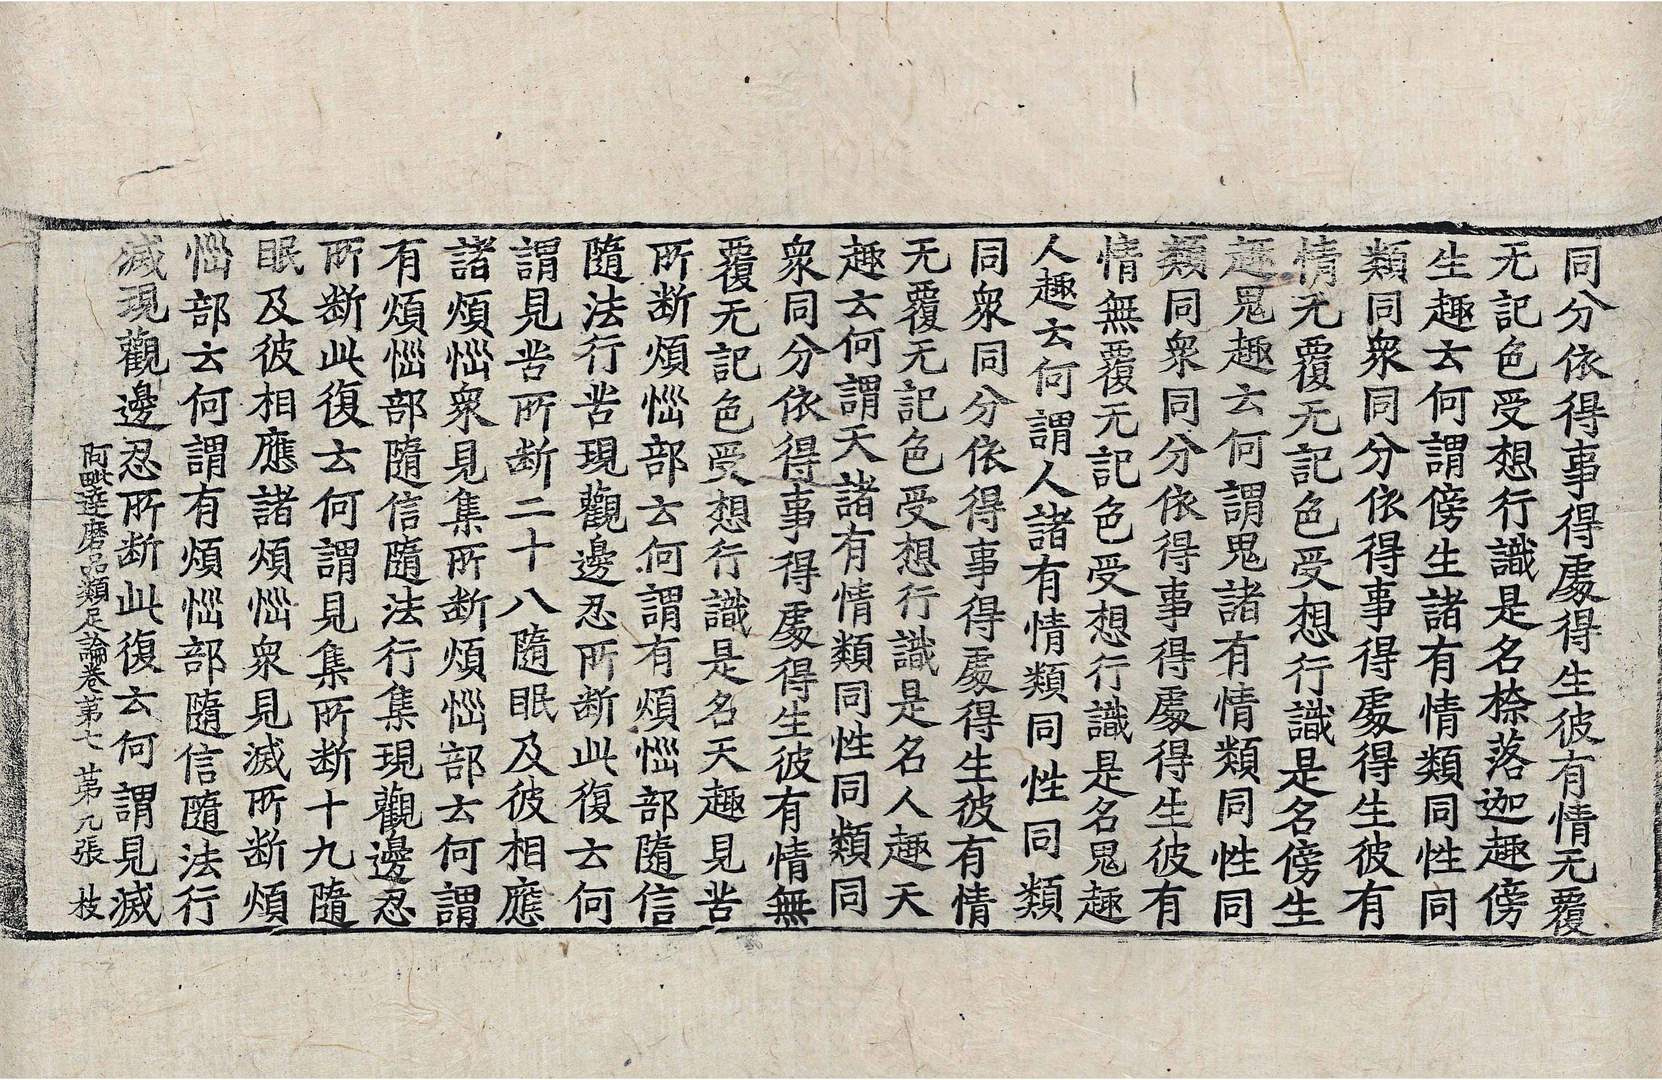 同分依得事得處得生彼有情无覆
无記色受想行識是名㮈落迦趣傍
生趣云何謂傍生諸有情類同性同
類同衆同分依得事得處得生彼有
情无覆无記色受想行識是名傍生
趣鬼趣云何謂鬼諸有情類同性同
類同衆同分依得事得處得生彼有
情無覆无記色受想行識是名鬼趣
人趣云何謂人諸有情類同性同類
同衆同分依得事得處得生彼有情
无覆无記色受想行識是名人趣天
趣云何謂天諸有情類同性同類同
衆同分依得事得處得生彼有情無
覆无記色受想行識是名天趣見苦
所断煩惱部云何謂有煩惱部隨信
隨法行苦現觀邊忍所断此復云何
謂見苦所断二十八隨眠及彼相應
諸煩惱衆見集所断煩惱部云何謂
有煩惱部隨信隨法行集現觀邊忍
所断此復云何謂見集所断十九隨
眠及彼相應諸煩惱衆見滅所断煩
惱部云何謂有煩惱部隨信隨法行
滅現觀邊忍所断此復云何謂見滅
阿毗達磨品類足論卷第七 第九張 枝